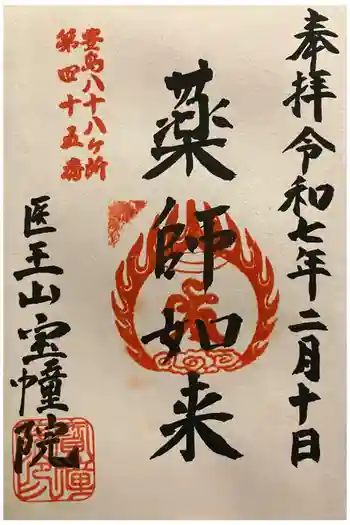 奉拝令和七年二月十日
薬師如来
豊島八十八ケ所
第四十五番
医王山宝幢院